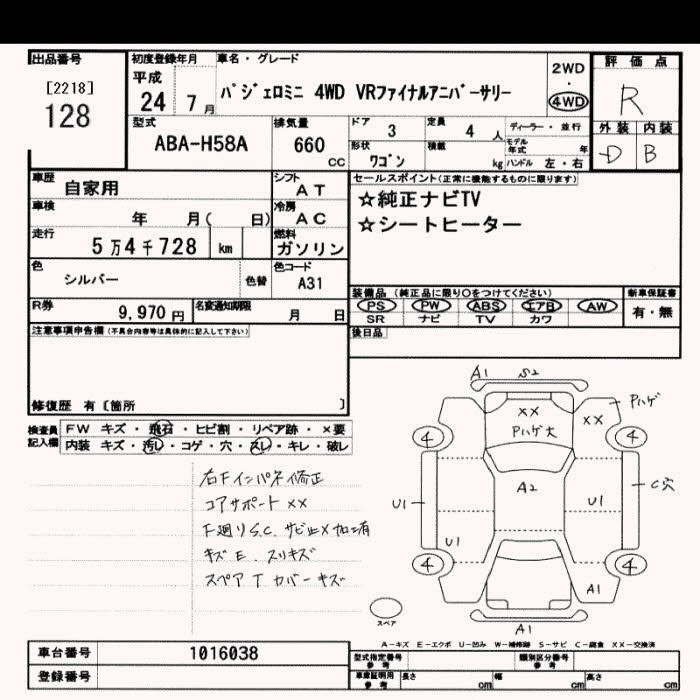 出品番号
[2218]
128
初度登録年月
平成
24 7月
車名・グレード
パジェロミニ 4WD VRファイナルアニバーサリー
2WD
・
4WD
評価点
R
外装 内装
D B
型式
ABA-H58A
排気量
660
CC
ドア 3
定員 4 人
ディーラー・並行
形状 ワゴン
積載 kg
モデル年式 年
ハンドル 左・右
車歴 自家用
シフト AT
車検 年 月( 日)
冷房 AC
走行 5万4千728 km
燃料 ガソリン
色 シルバー
色替
色コード A31
R券 9,970円
名変通知期限 月 日
セールスポイント(正常に機能するものに限ります)
☆純正ナビTV
☆シートヒーター
装備品 (純正品に限り○をつけてください)
新車保証書
PS PW ABS エアB AW
有・無
SR ナビ TV カワ
後日品
注意事項申告欄(不具合内容等は具体的に記入して下さい)
修復歴 有〔箇所 〕
検査員記入欄
FW キズ・飛石・ヒビ割・リペア跡・×要
内装 キズ・汚レ・コゲ・穴・スレ・キレ・破レ
右Fインパネ修正
コアサポート××
F廻りS.C. サビ止×加工有
キズE. スリキズ
スペアTカバーキズ
A1 S2
××
Pハゲ大
××
Pハゲ
4
4
A2
U1
U1
C穴
U1
4
4
A1
A1
スペア
A-キズ E-エクボ U-凹み W-補修跡 S-サビ C-腐食 XX-交換済
車台番号 1016038
登録番号
型式指定番号 参考
類別区分番号 参考
車庫証明用 参考
長さ cm
幅 cm
高さ cm